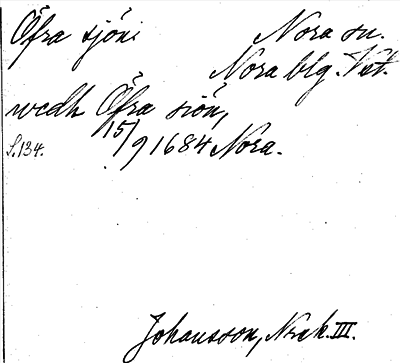 Öfra sjön: Nora sn.
Nora blg. Vst.
wedh Öfra siön,
S.134. 15/9 1684 Nora.
Johansson, Nzrk. III.